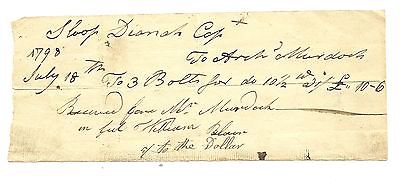 Sloop Diana's Cap
To Archd Murdoch
1798
July 18th To 3 Bolts for do 10½ wt £.. 10-6
Received from Mr Murdoch
in full William Blair
7/ to the Dollar